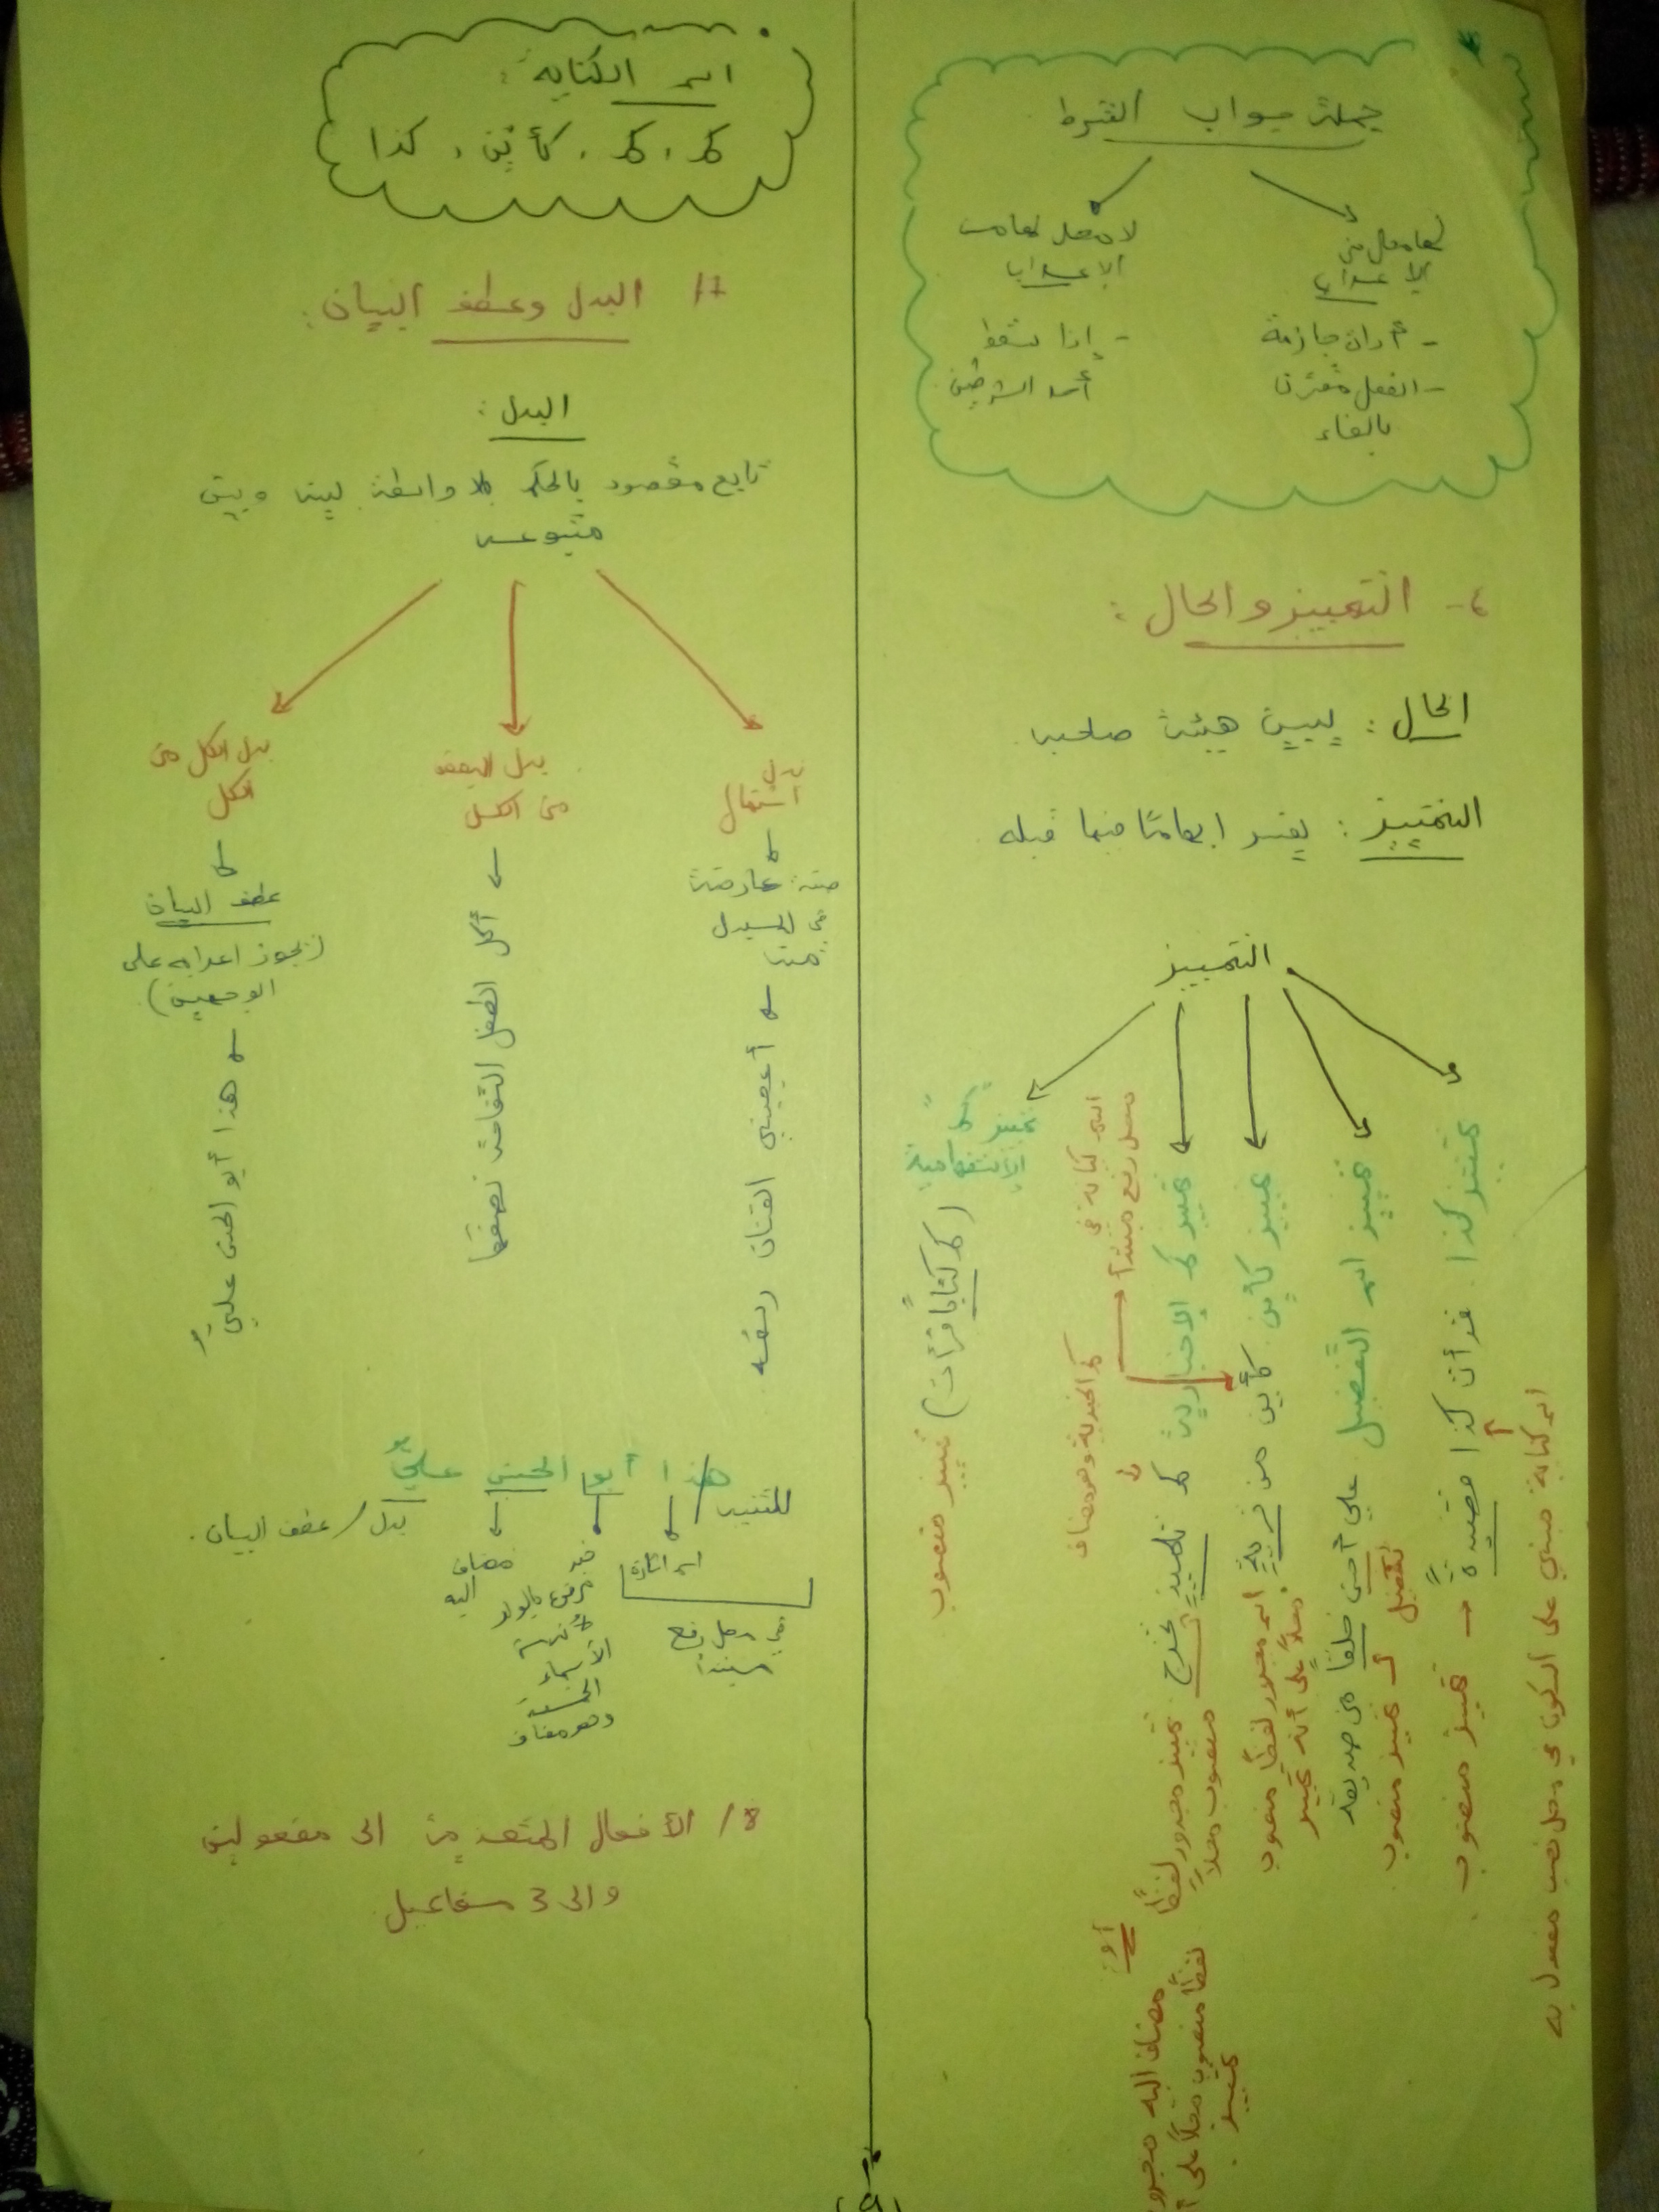 جملة جواب الشرط
لها محل من
الإعراب
- أداة جازمة
- الفعل مقترن
بالفاء
لا محل لها من
الإعراب
- إذا سقط
أحد الشرطين
٤- التمييز والحال :
الحال : يبين هيئة صاحبه
التمييز : يفسر ابهامًا فيما قبله
التمييز
تمييز كذا . قرأت كذا قصيدةً
→ تمييز منصوب
اسم كناية مبني على السكون في محل نصب مفعول به
تمييز اسم التفضيل علي أحسن خلقا من صديقه
تفضيل
تمييز منصوب
تمييز كأين كأين من قريةٍ
اسم مجرور لفظًا منصوب
محلاً على أنه تمييز
تمييز كم الإخبارية كم تلميذٍ تخرج
تمييز مجرور لفظًا
منصوب محلاً
أو:
مضاف اليه مجرور
لفظًا منصوب محلاً على
تمييز
اسم كناية في
محل رفع مبتدأ
كم الخبرية وهو مضاف
تمييز "كم"
الاستفهامية
(كم كتابًا قرأت)
تمييز منصوب
اسم الكناية :
كم ، كم ، كأين ، كذا
7/ البدل وعطف البيان :
البدل :
تابع مقصود بالحكم بلا واسطة بينه وبين
متبوعه
بدل
اشتمال
صفة عارضة
في المبدل
منه
أعجبني الفنان ريشه
بدل البعض
من الكل
أكل الطفل التفاحة نصفها
بدل الكل من
الكل
عطف البيان
(يجوز اعرابه على
الوجهين)
هذا أبو الحسن عليٌّ
هذا أبو الحسن عليٌّ
للتنبيه
اسم اشارة
في محل رفع
مبتدأ
خبر
مرفوع بالواو
لأنه من
الأسماء
الخمسة
وهو مضاف
مضاف
اليه
بدل / عطف البيان .
8/ الأفعال المتعدية الى مفعولين
والى 3 مفاعيل